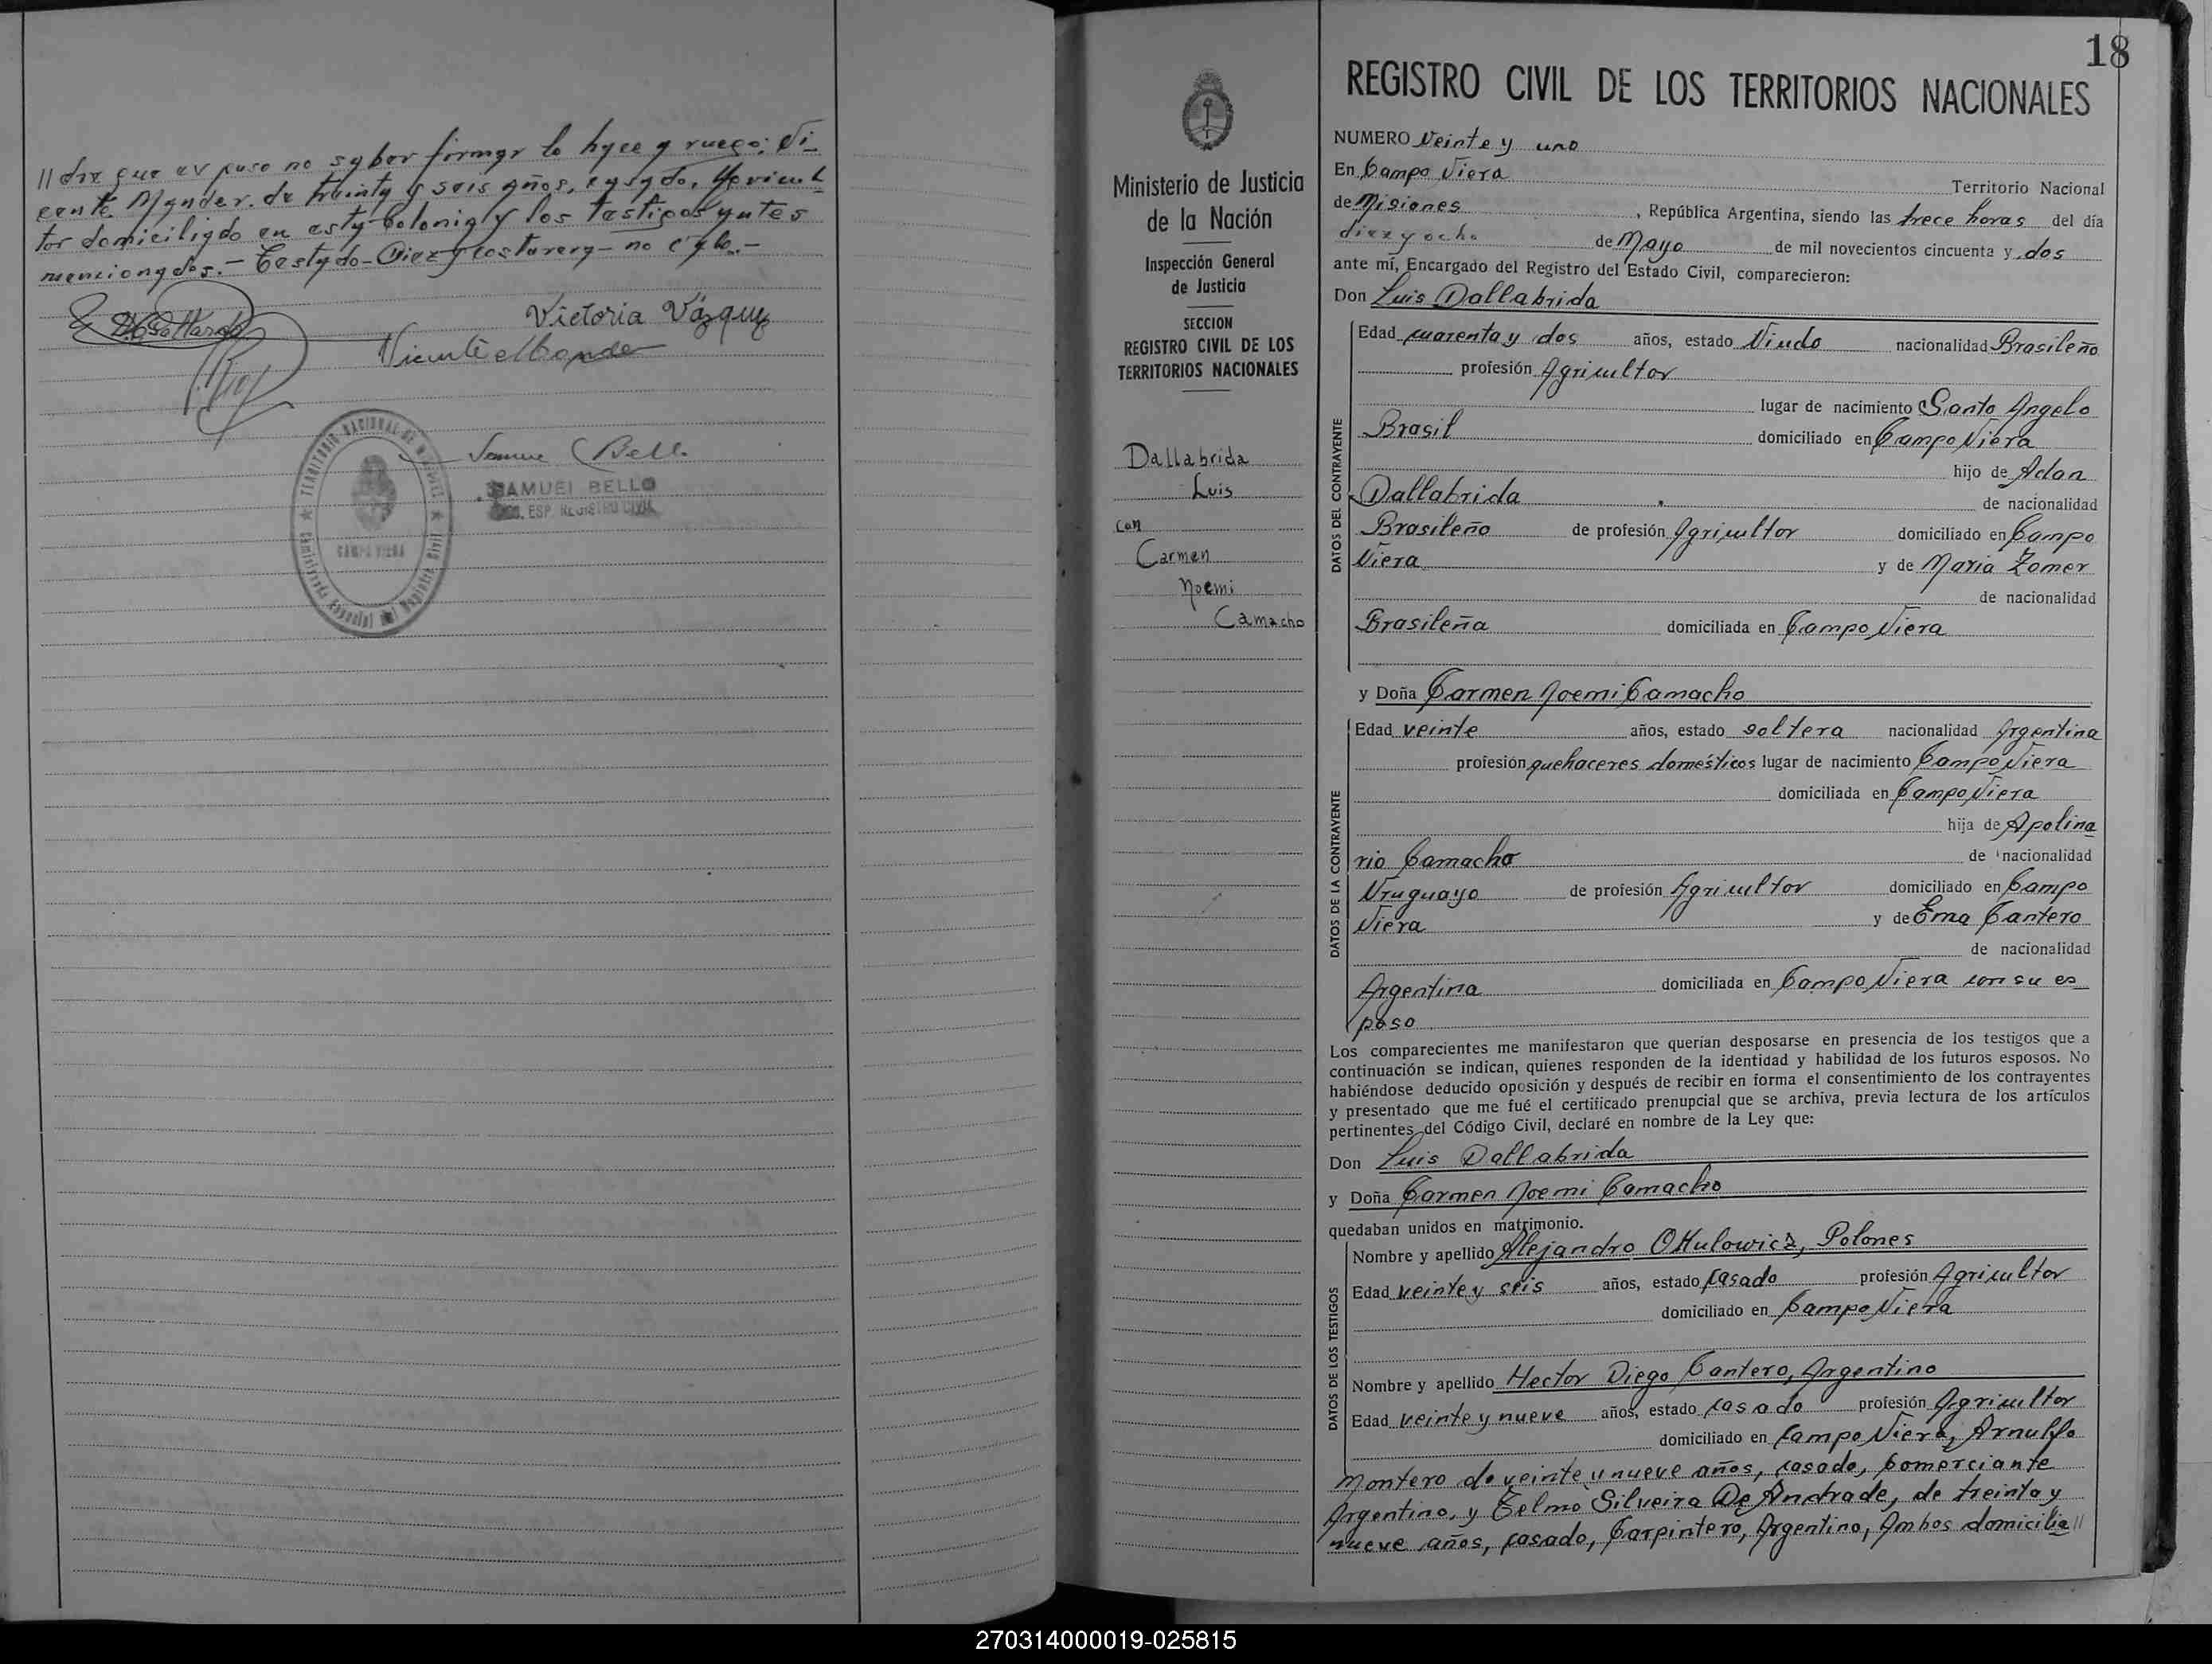 // dre que expuso no saber firmar lo hace a ruego: Vi-
cente Mander. de treinta y seis años, casado, Agricul-
tor domiciliado en esta Colonia y los testigos antes
mencionados.- Testado- Diez y costurera- no vale.-
Victoria Vázquez
Vicente Mander
Samuel Bello
SAMUEL BELLO
ESP. REGISTRO CIVIL
TERRITORIO NACIONAL DE MISIONES
CAMPO VIERA
Comisionado Especial del Registro Civil
18
Ministerio de Justicia
de la Nación
Inspección General
de Justicia
SECCION
REGISTRO CIVIL DE LOS
TERRITORIOS NACIONALES
Dallabrida
Luis
con
Carmen
Noemi
Camacho
REGISTRO CIVIL DE LOS TERRITORIOS NACIONALES
NUMERO Veinte y uno
En Campo Viera Territorio Nacional
de Misiones, República Argentina, siendo las trece horas del día
diez y ocho de Mayo de mil novecientos cincuenta y dos
ante mí, Encargado del Registro del Estado Civil, comparecieron:
Don Luis Dallabrida
DATOS DEL CONTRAYENTE
Edad cuarenta y dos años, estado Viudo nacionalidad Brasileño
profesión Agricultor
lugar de nacimiento Santo Angelo
Brasil domiciliado en Campo Viera
hijo de Adan
Dallabrida de nacionalidad
Brasileño de profesión Agricultor domiciliado en Campo
Viera y de Maria Zomer
de nacionalidad
Brasileña domiciliada en Campo Viera
y Doña Carmen Noemi Camacho
DATOS DE LA CONTRAYENTE
Edad veinte años, estado soltera nacionalidad Argentina
profesión quehaceres domésticos lugar de nacimiento Campo Viera
domiciliada en Campo Viera
hija de Apolina
rio Camacho de nacionalidad
Uruguayo de profesión Agricultor domiciliado en Campo
Viera y de Ema Cantero
de nacionalidad
Argentina domiciliada en Campo Viera con su es
poso
Los comparecientes me manifestaron que querían desposarse en presencia de los testigos que a
continuación se indican, quienes responden de la identidad y habilidad de los futuros esposos. No
habiéndose deducido oposición y después de recibir en forma el consentimiento de los contrayentes
y presentado que me fué el certificado prenupcial que se archiva, previa lectura de los artículos
pertinentes del Código Civil, declaré en nombre de la Ley que:
Don Luis Dallabrida
y Doña Carmen Noemi Camacho
quedaban unidos en matrimonio.
DATOS DE LOS TESTIGOS
Nombre y apellido Alejandro Okulowicz, Polones
Edad veinte y seis años, estado casado profesión Agricultor
domiciliado en Campo Viera
Nombre y apellido Hector Diego Cantero, Argentino
Edad veinte y nueve años, estado casado profesión Agricultor
domiciliado en Campo Viera, Arnulfo
Montero de veinte y nueve años, casado, Comerciante
Argentino, y Telmo Silveira De Andrade, de treinta y
nueve años, casado, Carpintero, Argentino, Ambos domicilia//
270314000019-025815